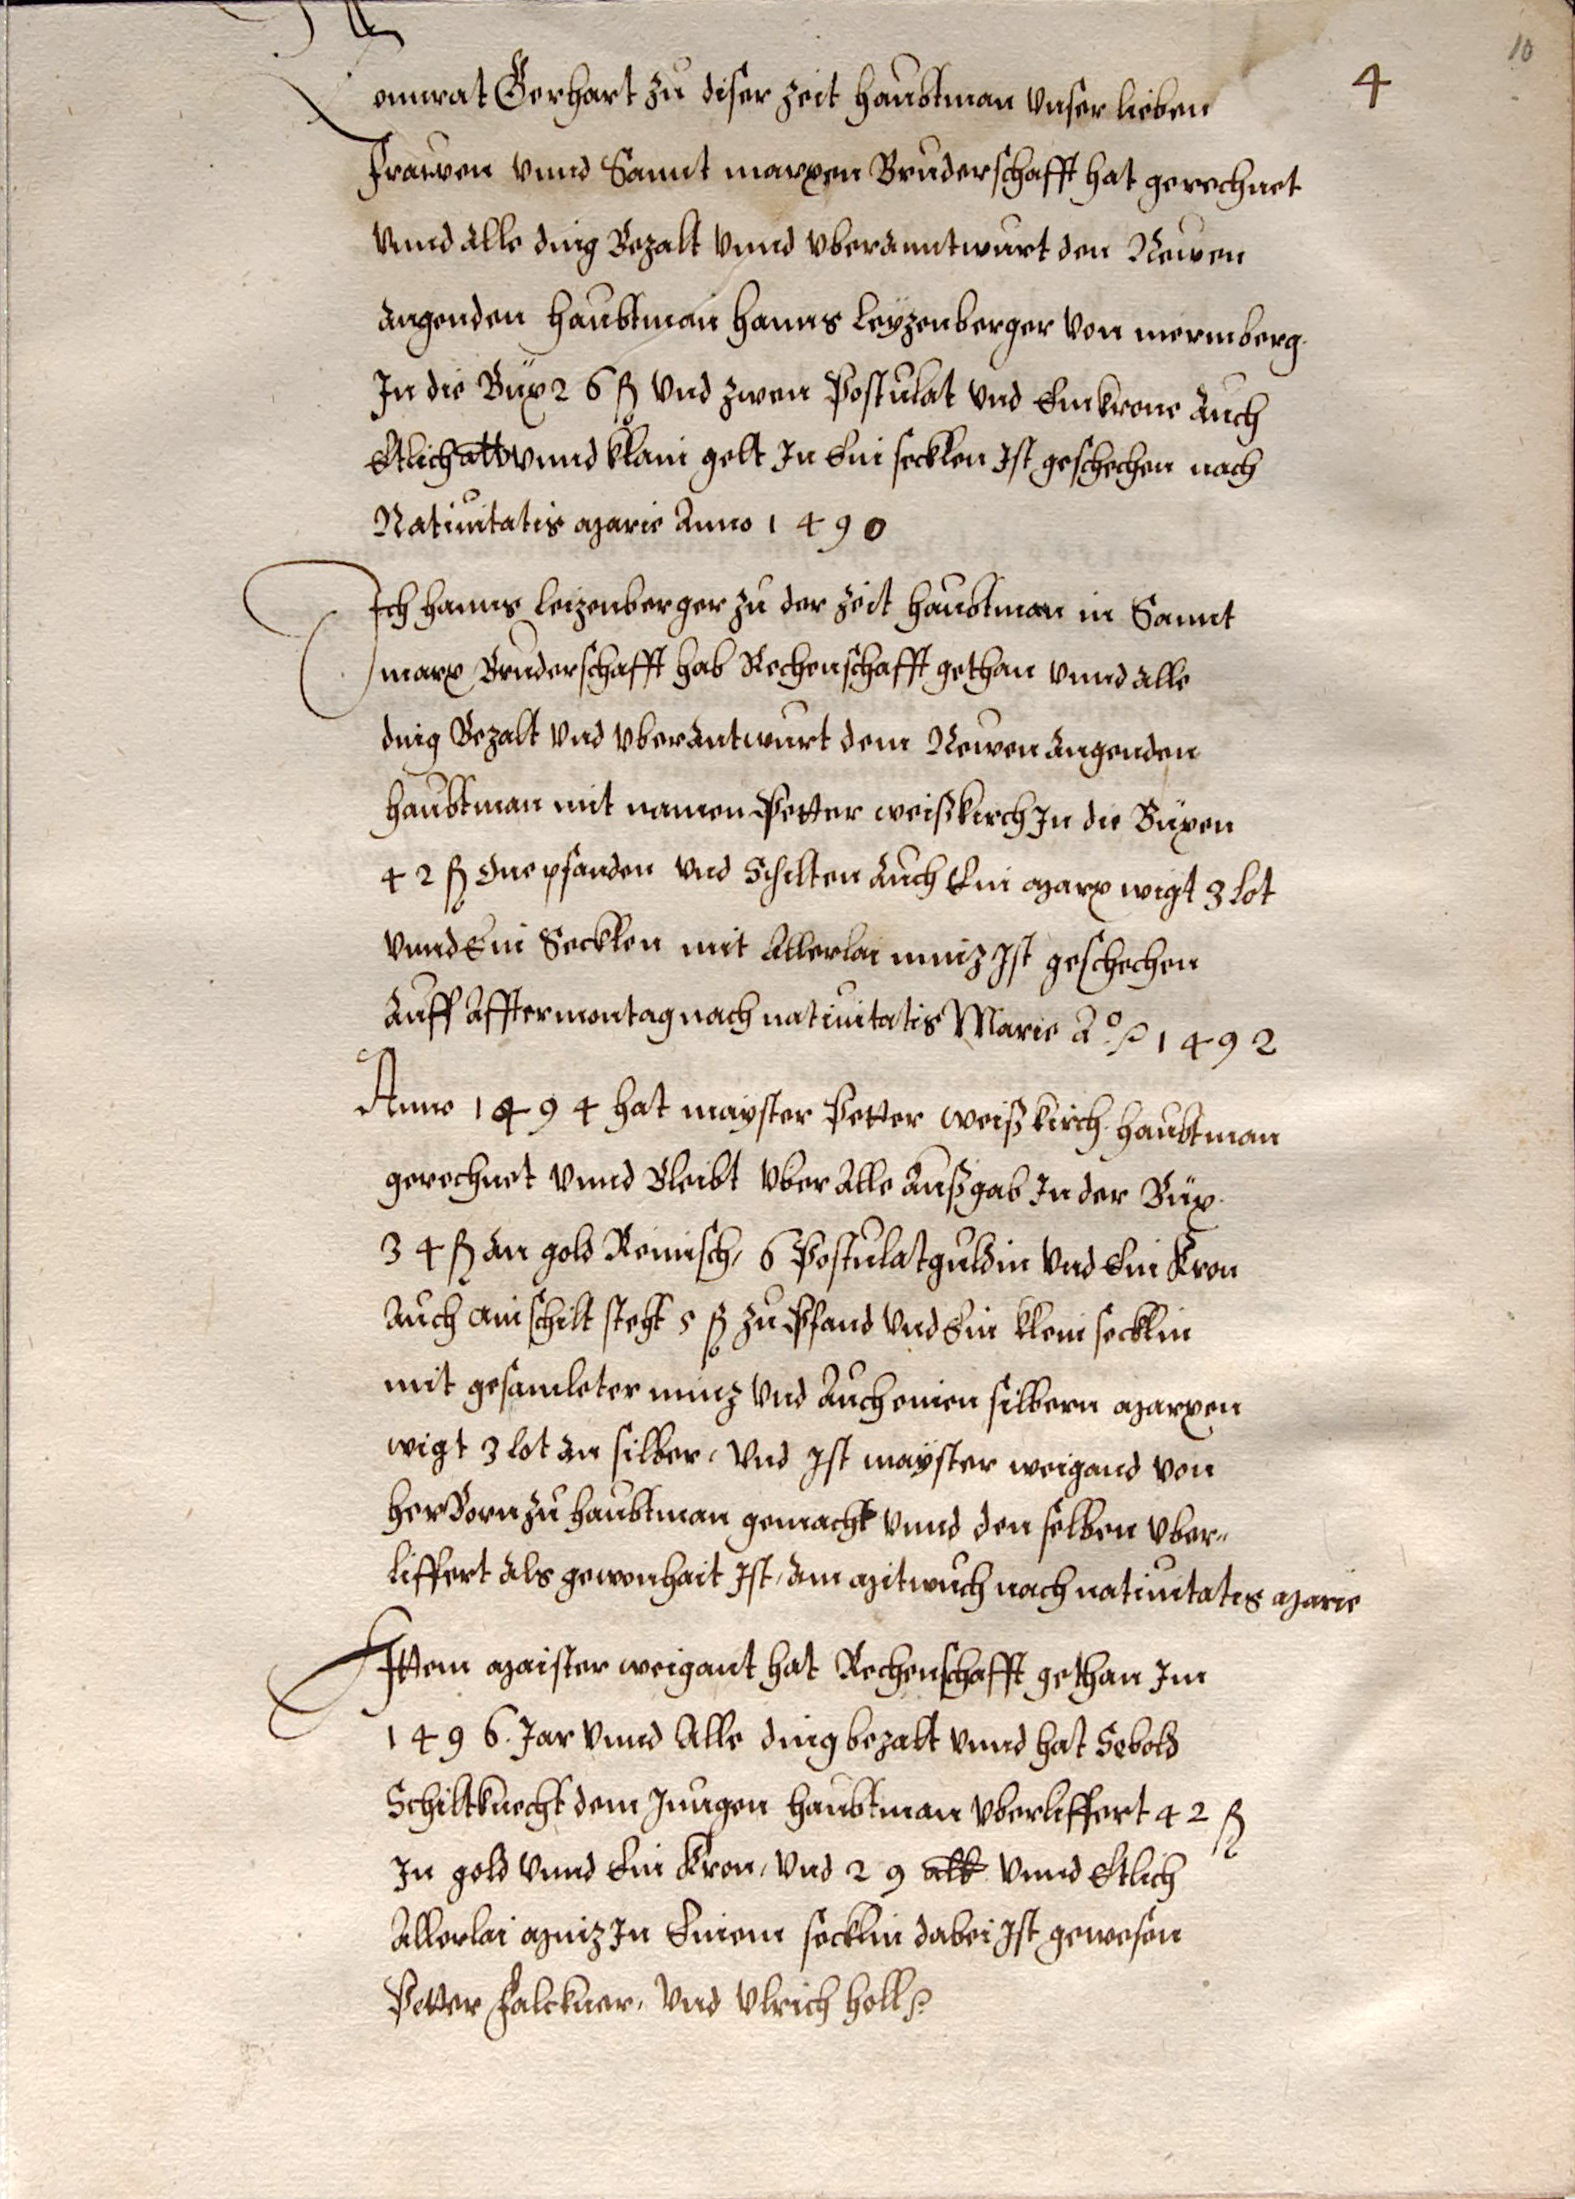 10
4
Connrat Gerhart zu diser zeit haubtman vnser lieben
Frawen vnnd Sannt marxen Bruderschafft hat gerechnet
vnnd alle ding Bezalt vnnd vberanntwurt den Newen
angenden haubtman hanns leyzenberger von nermberg
In die Büx 26 fl vnd zwen Postulat vnd Ein krone auch
Etlich alb vnnd klain gelt In Ein secklen Ist geschechen nach
Natiuitatis Marie Anno 1490
Ich hanns leizenberger zu der zeit haubtman in Sannt
marx Bruderschafft hab Rechenschafft gethan vnnd alle
ding Bezalt vnd vberantwurt dem Newen angenden
haubtman mit namen Petter weißkirch In die Büxen
42 fl one pfanden vnd Schilten auch Ein Marx wigt 3 lot
vnnd Ein Secklen mit allerlai miniz Ist geschechen
auff Afftermontag nach natiuitatis Marie Aº 1492
Anno 1494 hat mayster Petter weißkirch haubtman
gerechnet vnnd Bleibt vber alle außgab In der Büx
34 fl an gold Reinisch, 6 Postulatguldin vnd Ein Kron
auch ain schilt steht 5 ß zu Pfand vnd Ein klein secklin
mit gesamleter minz vnd auch einen silbern Marxen
wigt 3 lot an silber, vnd Ist mayster weigand von
herborn zu haubtman gemacht vnnd den selben vber-
liffert als gewonhait Ist, am Mitwuch nach natiuitatis Marie
Ittem Maister weigant hat Rechenschafft gethan Im
1496. Jar vnnd alle ding bezalt vnnd hat Sebold
Schiltknecht dem Jungen haubtman vberliffert 42 fl
In gold vnnd Ein Kron, vnd 29 alb vnnd Etlich
allerlai Miniz In Einem secklin dabei Ist gewesen
Petter Falckner, vnd Vlrich holl